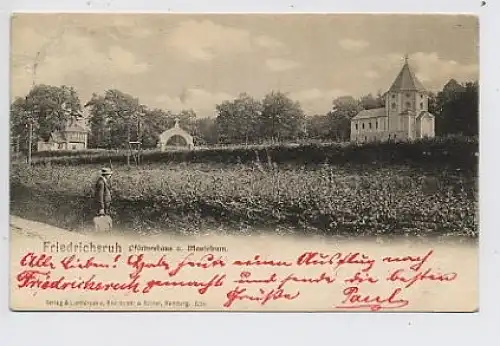 Friedrichsruh Pförtnerhaus u. Mausoleum.
Alle Lieben! Habe heute einen Ausflug nach
Friedrichsruh gemacht und sende die besten
Grüße Paul
Verlag & Hamburg.